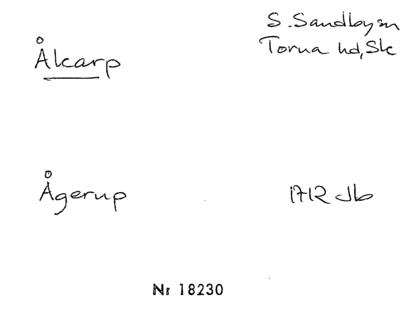 Ålcarp
S. Sandby sn
Torna hd, Sk
Ågerup
1712 Jb
Nr 18230